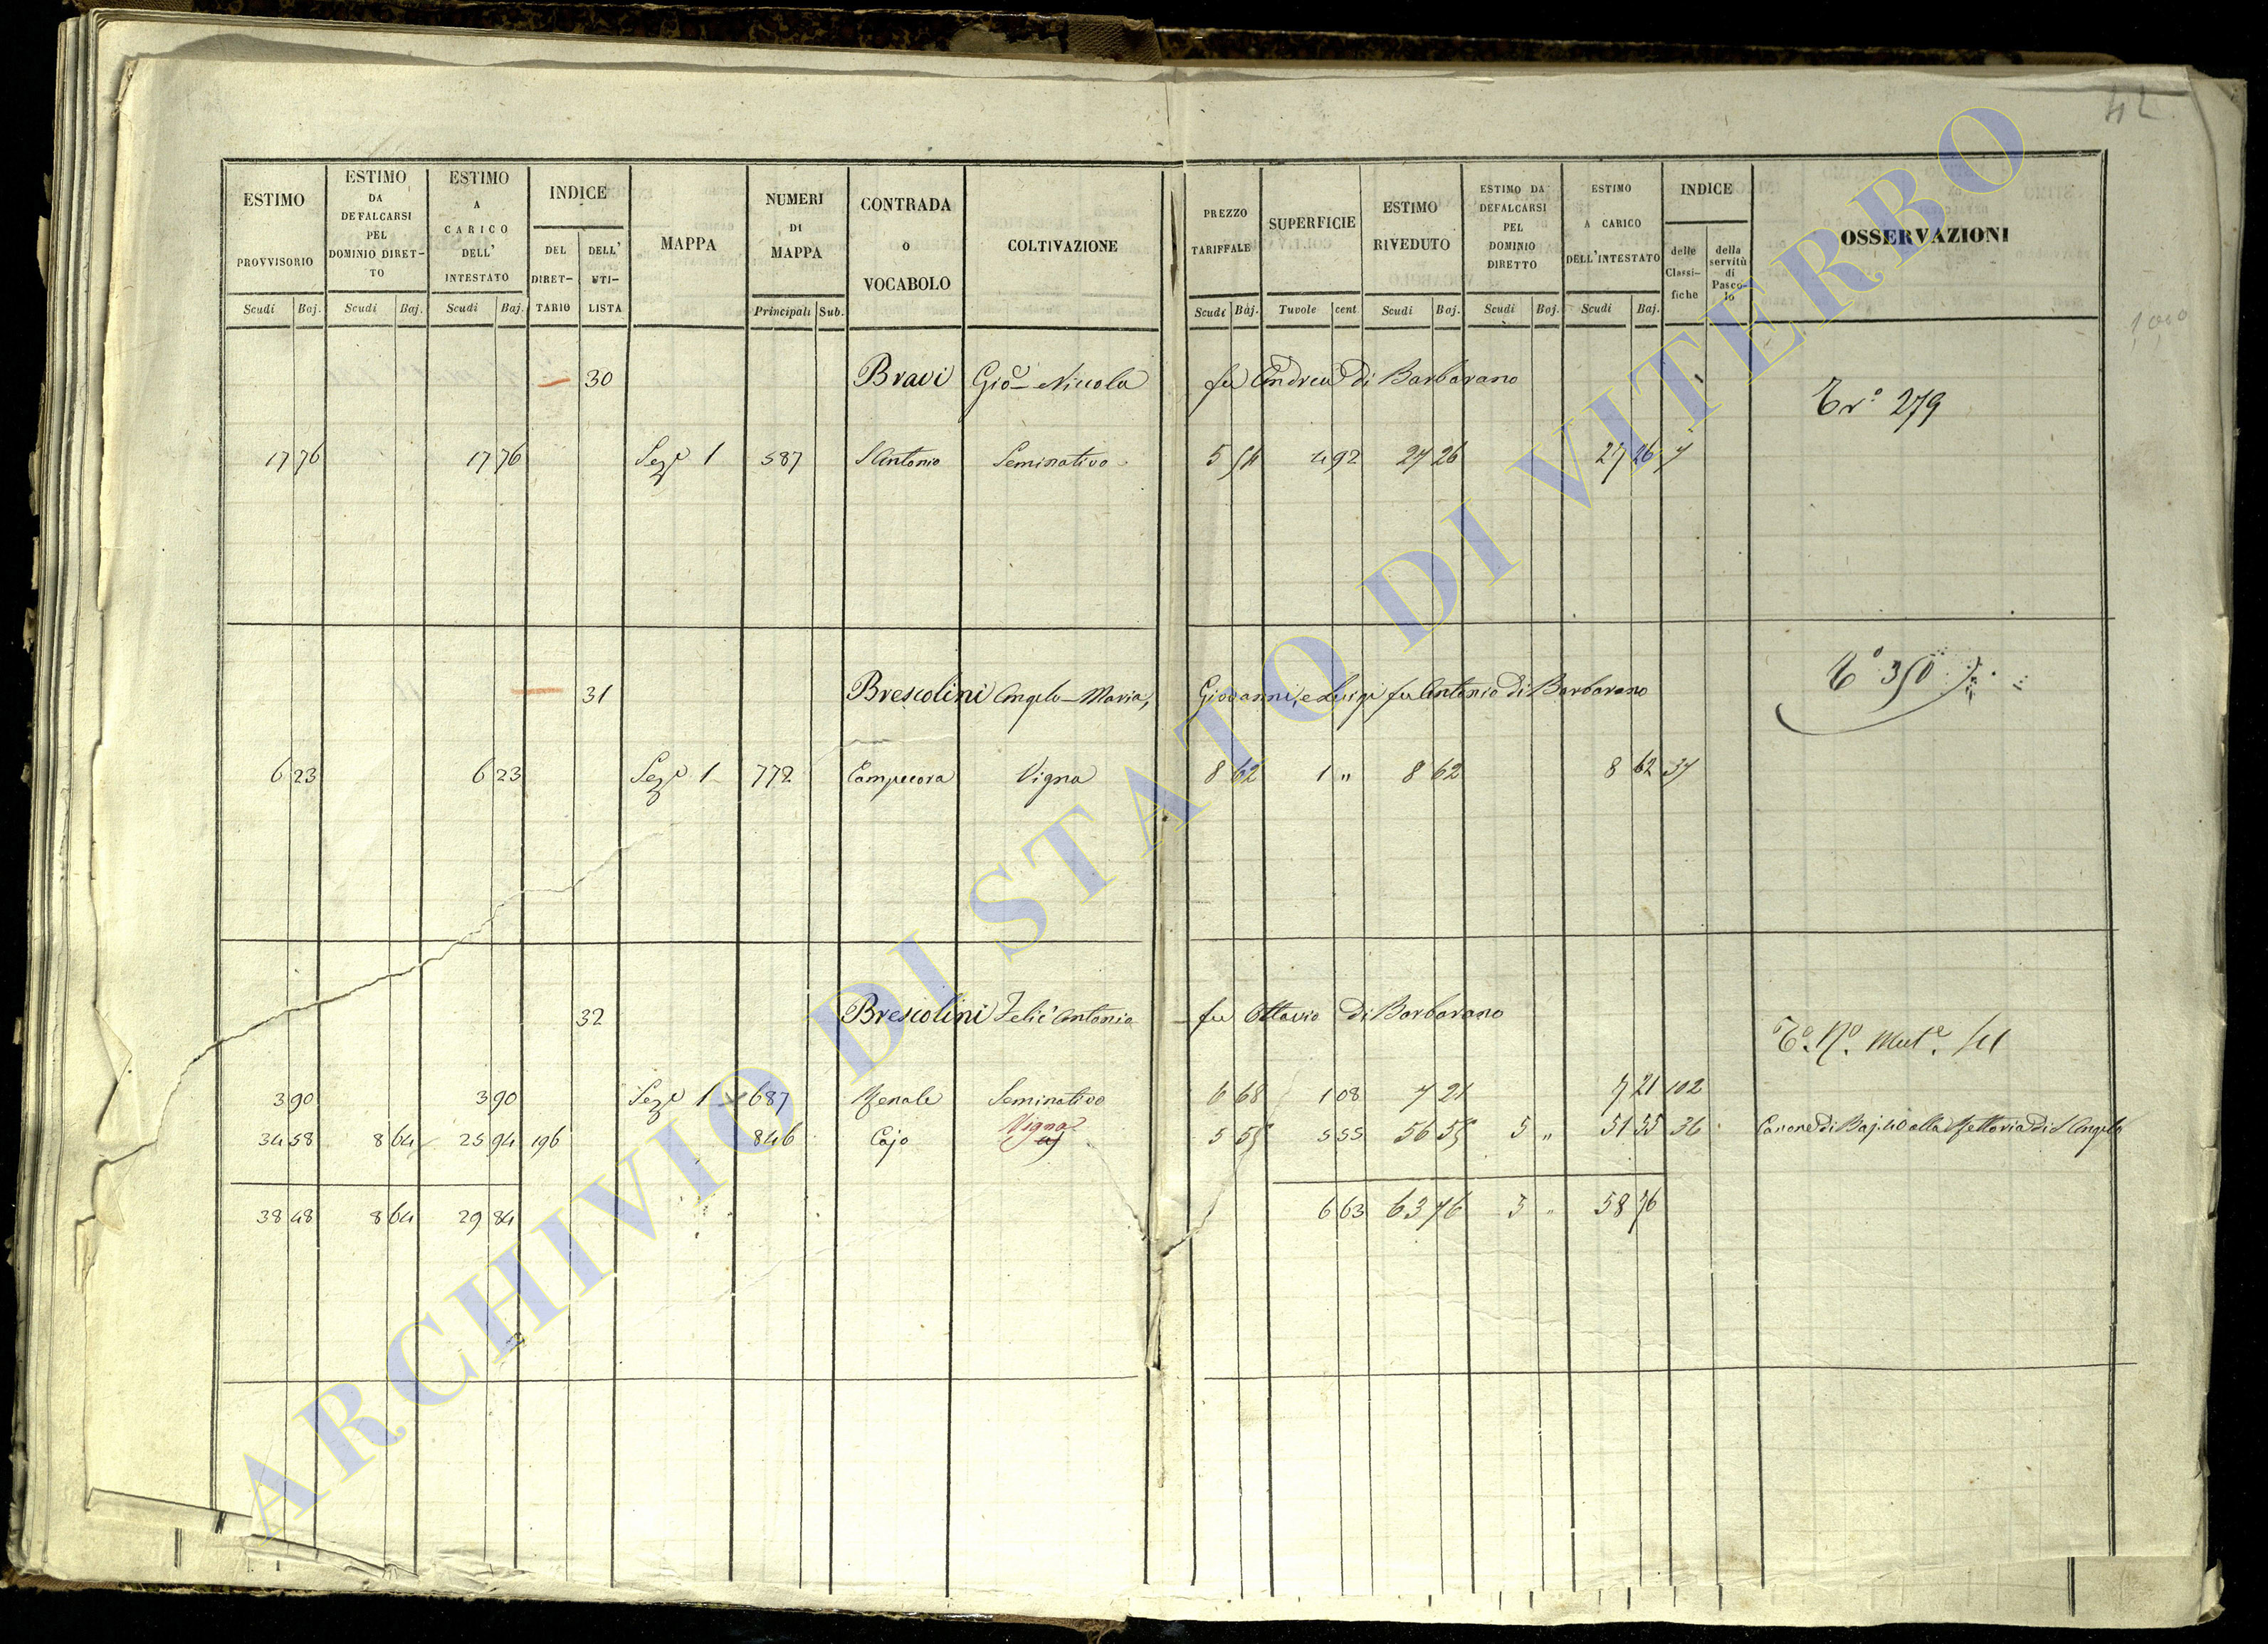 42
ESTIMO PROVVISORIO
ESTIMO DA DEFALCARSI PEL DOMINIO DIRET-TO
ESTIMO A CARICO DELL' INTESTATO
INDICE
DEL DIRET-TARIO
DELL' UTI-LISTA
MAPPA
NUMERI DI MAPPA
CONTRADA O VOCABOLO
COLTIVAZIONE
PREZZO TARIFFALE
SUPERFICIE
ESTIMO RIVEDUTO
ESTIMO DA DEFALCARSI PEL DOMINIO DIRETTO
ESTIMO A CARICO DELL'INTESTATO
INDICE
delle Classi-fiche
della servitù di Pasco-lo
OSSERVAZIONI
Scudi Baj. Scudi Baj. Scudi Baj. Principali Sub. Scudi Baj. Tavole cent Scudi Baj. Scudi Baj. Scudi Baj.
30 Bravi Gio. Nicola fu Andrea di Barbarano
Tr.o 279
17 76 17 76 Sez.e 1 587 S Antonio Seminativo 5 54 4 92 27 26 27 26 7
31 Brescolini Angelo-Maria, Giovanni, e Luigi fu Antonio di Barbarano
T.o 350
6 23 6 23 Sez.e 1 772 Campecora Vigna 8 62 1 " 8 62 8 62 37
32 Brescolini Felic'Antonio fu Ottavio di Barbarano
3 90 3 90 Sez.e 1 687 Seminativo 6 68 1 08 7 21 7 21 102
34 58 8 64 25 94 196 846 Cajo Vigna 5 55 56 55 5 " 51 55 36 Canone di Baj. 40 alla Rettoria di S Angelo
38 48 8 64 29 84 6 63 63 76 5 " 58 76
ARCHIVIO DI STATO DI VITERBO